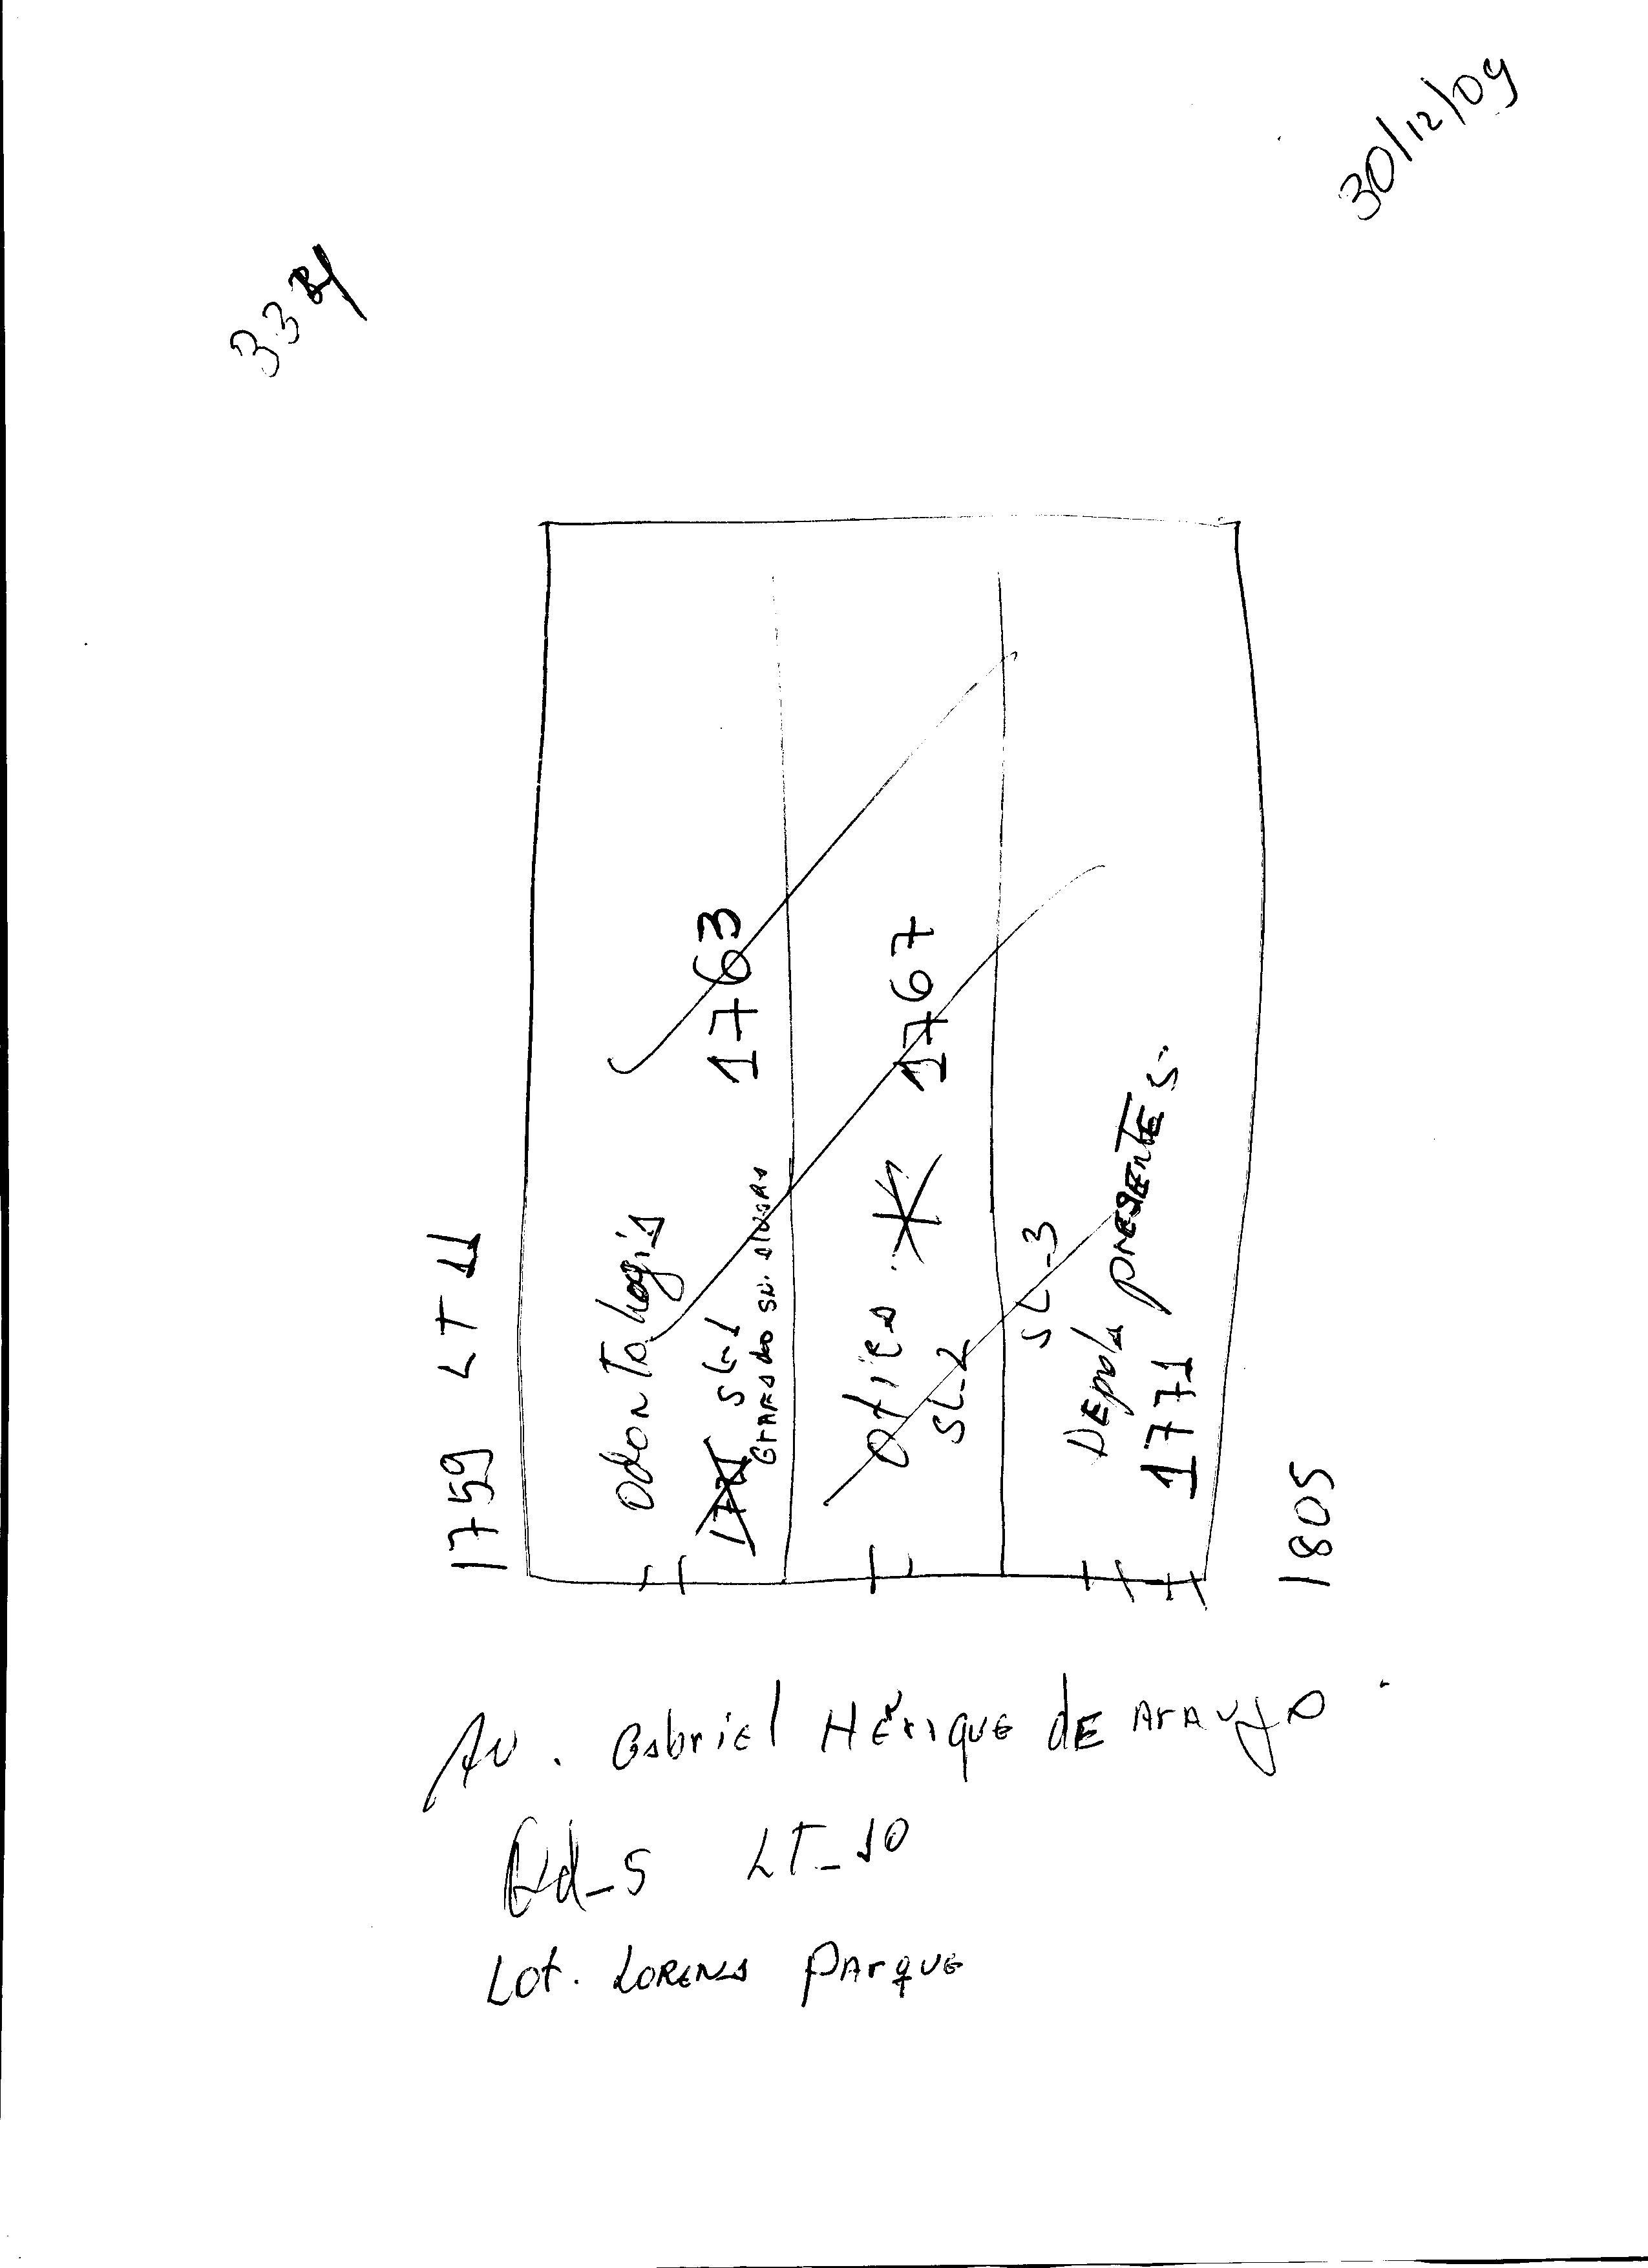 30/12/09
33
1759 LT 11
Odontologia
SL-1
1763
Otica
SL-2
1767
SL-3
Depola presentes.
1771
1805
Av. Gabriel Hērique de Araujo
Qd_5 LT_10
Lot. Lorena Parque